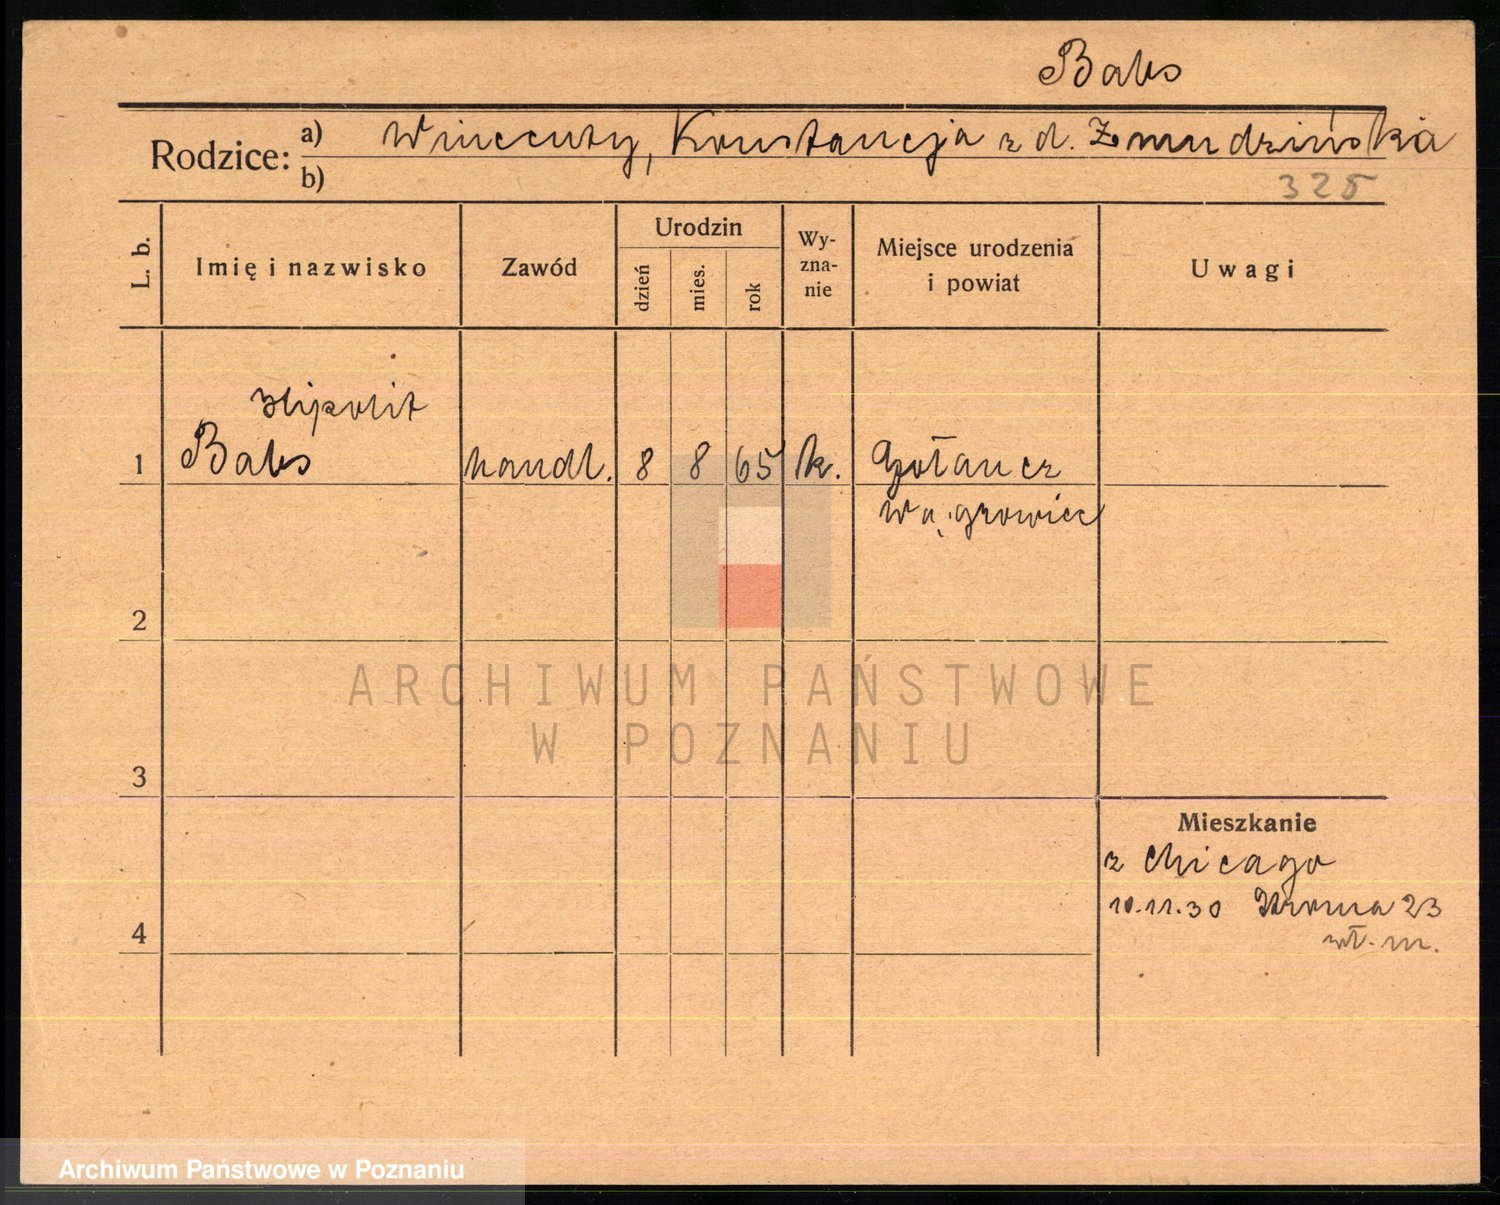 Baks
Rodzice: a) Wincenty, Konstancja z d. Żmudzińska
b)
325
L. b.
Imię i nazwisko
Zawód
Urodzin
dzień
mies.
rok
Wy-
zna-
nie
Miejsce urodzenia
i powiat
Uwagi
Hipolit
1 Baks handl. 8 8 65 k. Gołańcz
Wągrowiec
2
3
4
Mieszkanie
z Chicago
10.11.30 Stroma 23
wł. m.
ARCHIWUM PAŃSTWOWE
W POZNANIU
Archiwum Państwowe w Poznaniu